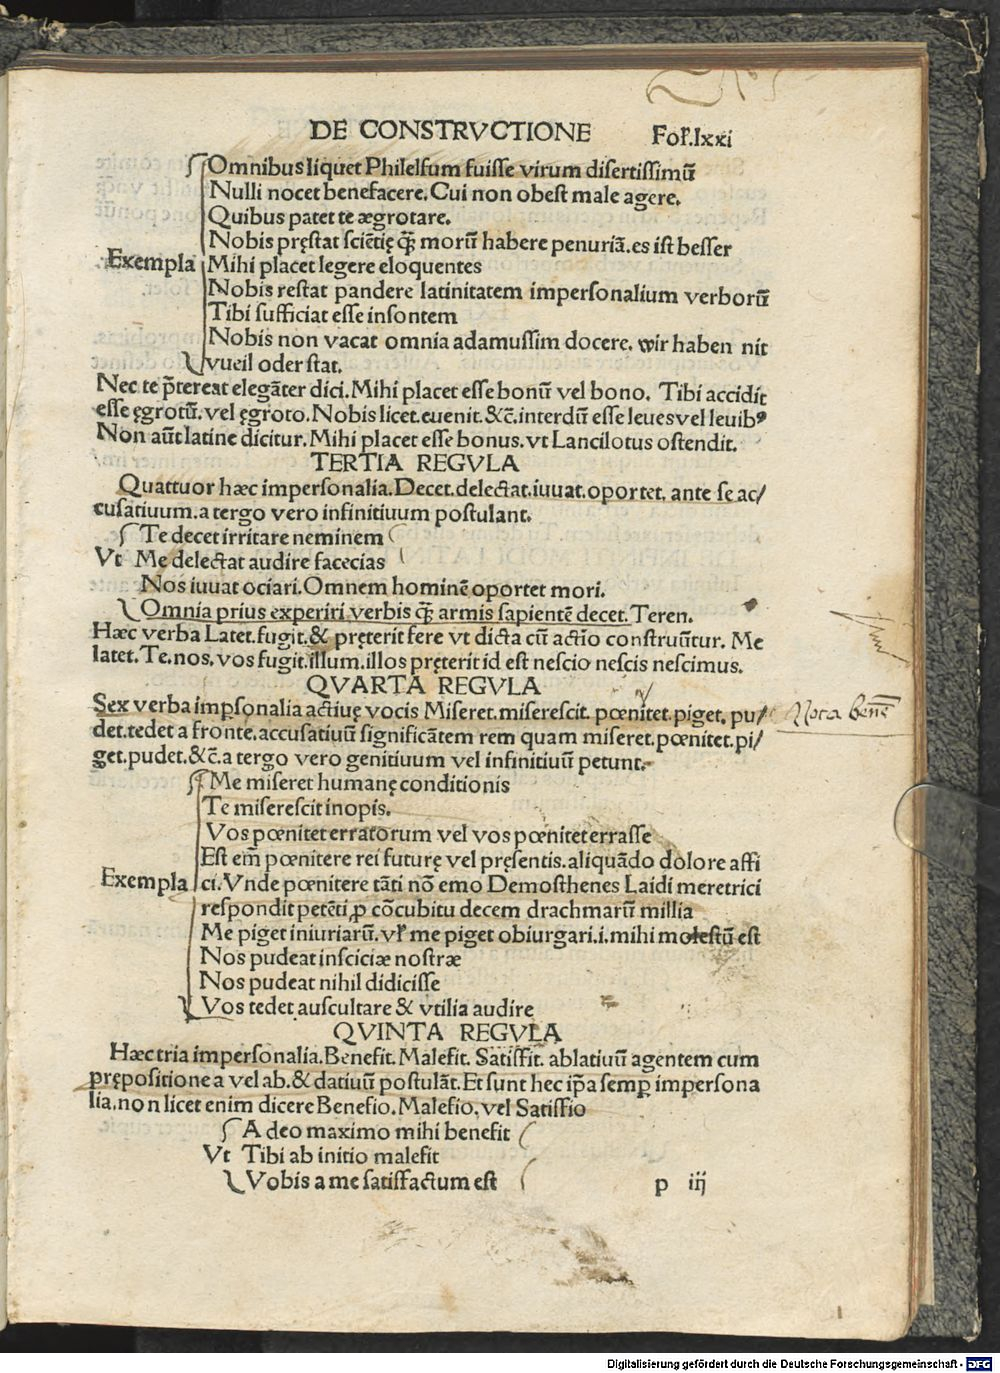 DE CONSTRVCTIONE Fol'.lxxi
Omnibus liquet Philelfum fuiſſe virum diſertiſſimū
Nulli nocet benefacere. Cui non obeſt male agere.
Quibus patet te ægrotare.
Nobis pręſtat ſciētię q̄ȝ morū habere penuriā. es iſt beſſer
Exempla Mihi placet legere eloquentes
Nobis reſtat pandere latinitatem imperſonalium verborū
Tibi ſufficiat eſſe inſontem
Nobis non vacat omnia adamuſſim docere. wir haben nit
vueil oder ſtat.
Nec te p̄tereat elegāter dici. Mihi placet eſſe bonū vel bono. Tibi accidit
eſſe ęgrotū. vel ęgroto. Nobis licet. euenit. &c̄. interdū eſſe leues vel leuibꝰ
Non aūt latine dicitur. Mihi placet eſſe bonus. vt Lancilotus oſtendit.
TERTIA REGVLA
Quattuor hæc imperſonalia. Decet. delectat. iuuat. oportet. ante ſe ac/
cuſatiuum. a tergo vero infinitiuum poſtulant.
Te decet irritare neminem
Vt Me delectat audire facecias
Nos iuuat ociari. Omnem hominē oportet mori.
Omnia prius experiri verbis q̄ȝ armis ſapientē decet. Teren.
Hæc verba Latet. fugit. & pręterit fere vt dicta cū actīo conſtruūtur. Me
latet. Te. nos. vos fugit. illum. illos pręterit id eſt neſcio neſcis neſcimus.
QVARTA REGVLA
Sex verba imꝑſonalia actiuę vocis Miſeret. miſereſcit. pœnitet. piget. pu/ Nota benē
det. tedet a fronte. accuſatiuū ſignificātem rem quam miſeret. pœnitet. pi/
get. pudet. &c̄. a tergo vero genitiuum vel infinitiuū petunt.
Me miſeret humanę conditionis
Te miſereſcit inopis.
Vos pœnitet erratorum vel vos pœnitet erraſſe
Eſt em̄ pœnitere rei futurę vel pręſentis. aliquādo dolore affi
Exempla ci. Vnde pœnitere tāti nō emo Demoſthenes Laidi meretrici
reſpondit petēti ꝓ cōcubitu decem drachmarū millia
Me piget iniuriarū. vl' me piget obiurgari. i. mihi moleſtū eſt
Nos pudeat inſciciæ noſtræ
Nos pudeat nihil didiciſſe
Vos tedet auſcultare & vtilia audire
QVINTA REGVLA
Hæc tria imperſonalia. Benefit. Malefit. Satiſfit. ablatiuū agentem cum
prępoſitione a vel ab. & datiuū poſtulāt. Et ſunt hec ip̄a ſemꝑ imperſona
lia. non licet enim dicere Benefio. Malefio. vel Satiſfio
A deo maximo mihi benefit
Vt Tibi ab initio malefit
Vobis a me ſatiſfactum eſt p iij
Digitalisierung gefördert durch die Deutsche Forschungsgemeinschaft - DFG